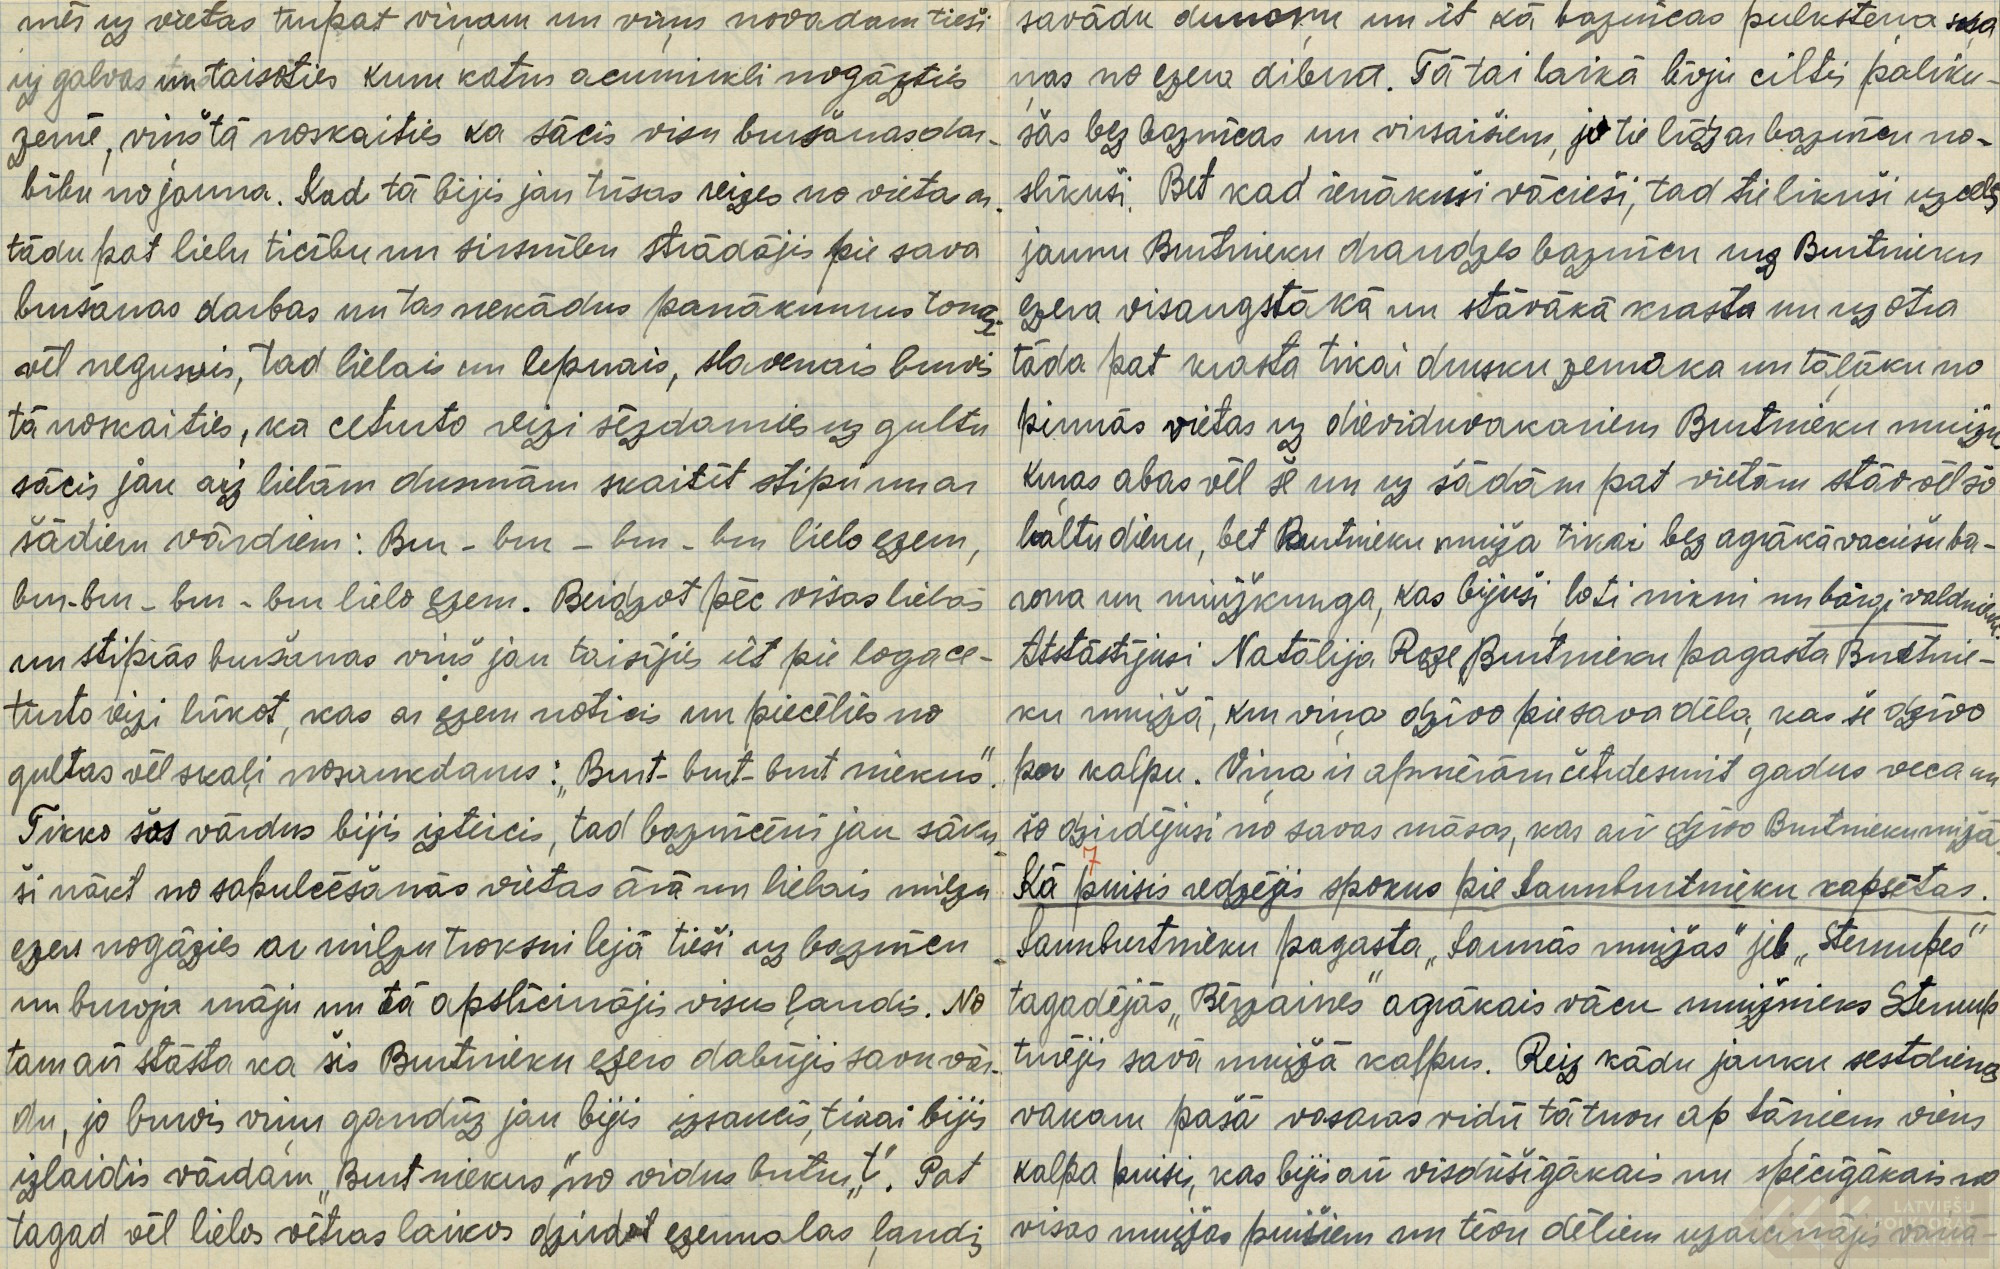 mēs uz vietas turpat viņam un viņa novadam tieši
uz galvas un taisoties kuru katru acumirkli nogāzties
zemē, viņš tā noskaities ka sācis visu buršanas dar-
bību no jauna. Kad tā bijis jau trīsas reizes no vieta ar
tādu pat lielu ticību un sirsnību strādājis pie sava
buršanas darbas un tas nekādus panākumus tomēr
vēl neguvis, tad lielais un lepnais, slavenais burvis
tā noskaities, ka ceturto reizi sēzdamies uz gultu
sācis jau aiz lielām dusmām skaitīt stipri un ar
šādiem vārdiem: Bur - bur - bur - bur lielo ezeru,
bur-bur - bur - bur lielo ezeru. Beidzot pēc visas lielās
un stiprās buršanas viņš jau taisījis iet pie loga ce-
turto reizi lūkot, kas ar ezeru noticis un piecēlies no
gultas vēl skaļi nosaukdams: „Burt-burt-burt niekus".
Tikko šos vārdus bijis izteicis, tad baznīcēni jau sāku-
ši nākt no sapulcēšanās vietas ārā un lielais milzu
ezers nogāzies ar milzu troksni lejā tieši uz baznīcu
un burvja māju un tā apslīcinājis visus ļaudis. No
tam arī stāsta ka šis Burtnieku ezers dabūjis savu vār-
du, jo burvis viņu gandrīz jau bijis izsaucis, tikai bijis
izlaidis vārdam „Burtniekus" no vidus burtu „t". Pat
tagad vēl lielos vētras laikos dzirdot ezermalas ļaudis
savādu dunoņu un it kā baznīcas pulksteņa ska
ņas no ezera dibena. Tā tai laikā līvju ciltis paliku-
šas bez baznīcas un virsaišiem, jo tie līdz ar baznīcu no-
slīkuši. Bet kad ienākuši vācieši, tad tie likuši uzcelt
jaunu Burtnieku draudzes baznīcu uz Burtnieku
ezera visaugstākā un stāvākā krasta un uz otra
tāda pat krasta tikai drusku zemāka un tālāku no
pirmās vietas uz dievidvakariem Burtnieku muižu
kuras abas vēl še un uz šādām pat vietām stāv vēl šo
baltu dienu, bet Burtnieku muiža tikai bez agrākā vaciešu ba-
rona un muižkunga, kas bijuši ļoti nikni un bārgi valdnieki.
Atstāstījusi Natālija Roze, Burtnieku pagasta Burtnie-
ku muižā, kur viņa dzīvo pie sava dēla, kas še dzīvo
par kalpu. Viņa ir apmēram četrdesmit gadus veca un
šo dzirdējusi no savas māsas, kas arī dzīvo Burtnieku mižā.
7
Kā puisis redzējis spokus pie Jaunburtnieku kapsētas.
Jaunburtnieku pagasta „Jaunās muižas" jeb „Sternupes"
tagadējās „Bērzaines" agrākais vācu muižnieks Sternups
turējis savā muižā kalpus. Reiz kādu jauku sestdienas
vakaru pašā vasaras vidū tā tuvu ap Jāņiem viens
kalpa puisis, kas bijis arī visdūšīgākais un spēcīgākais no
visas muižas puišiem un tēvu dēliem uzaicinājis vaka-